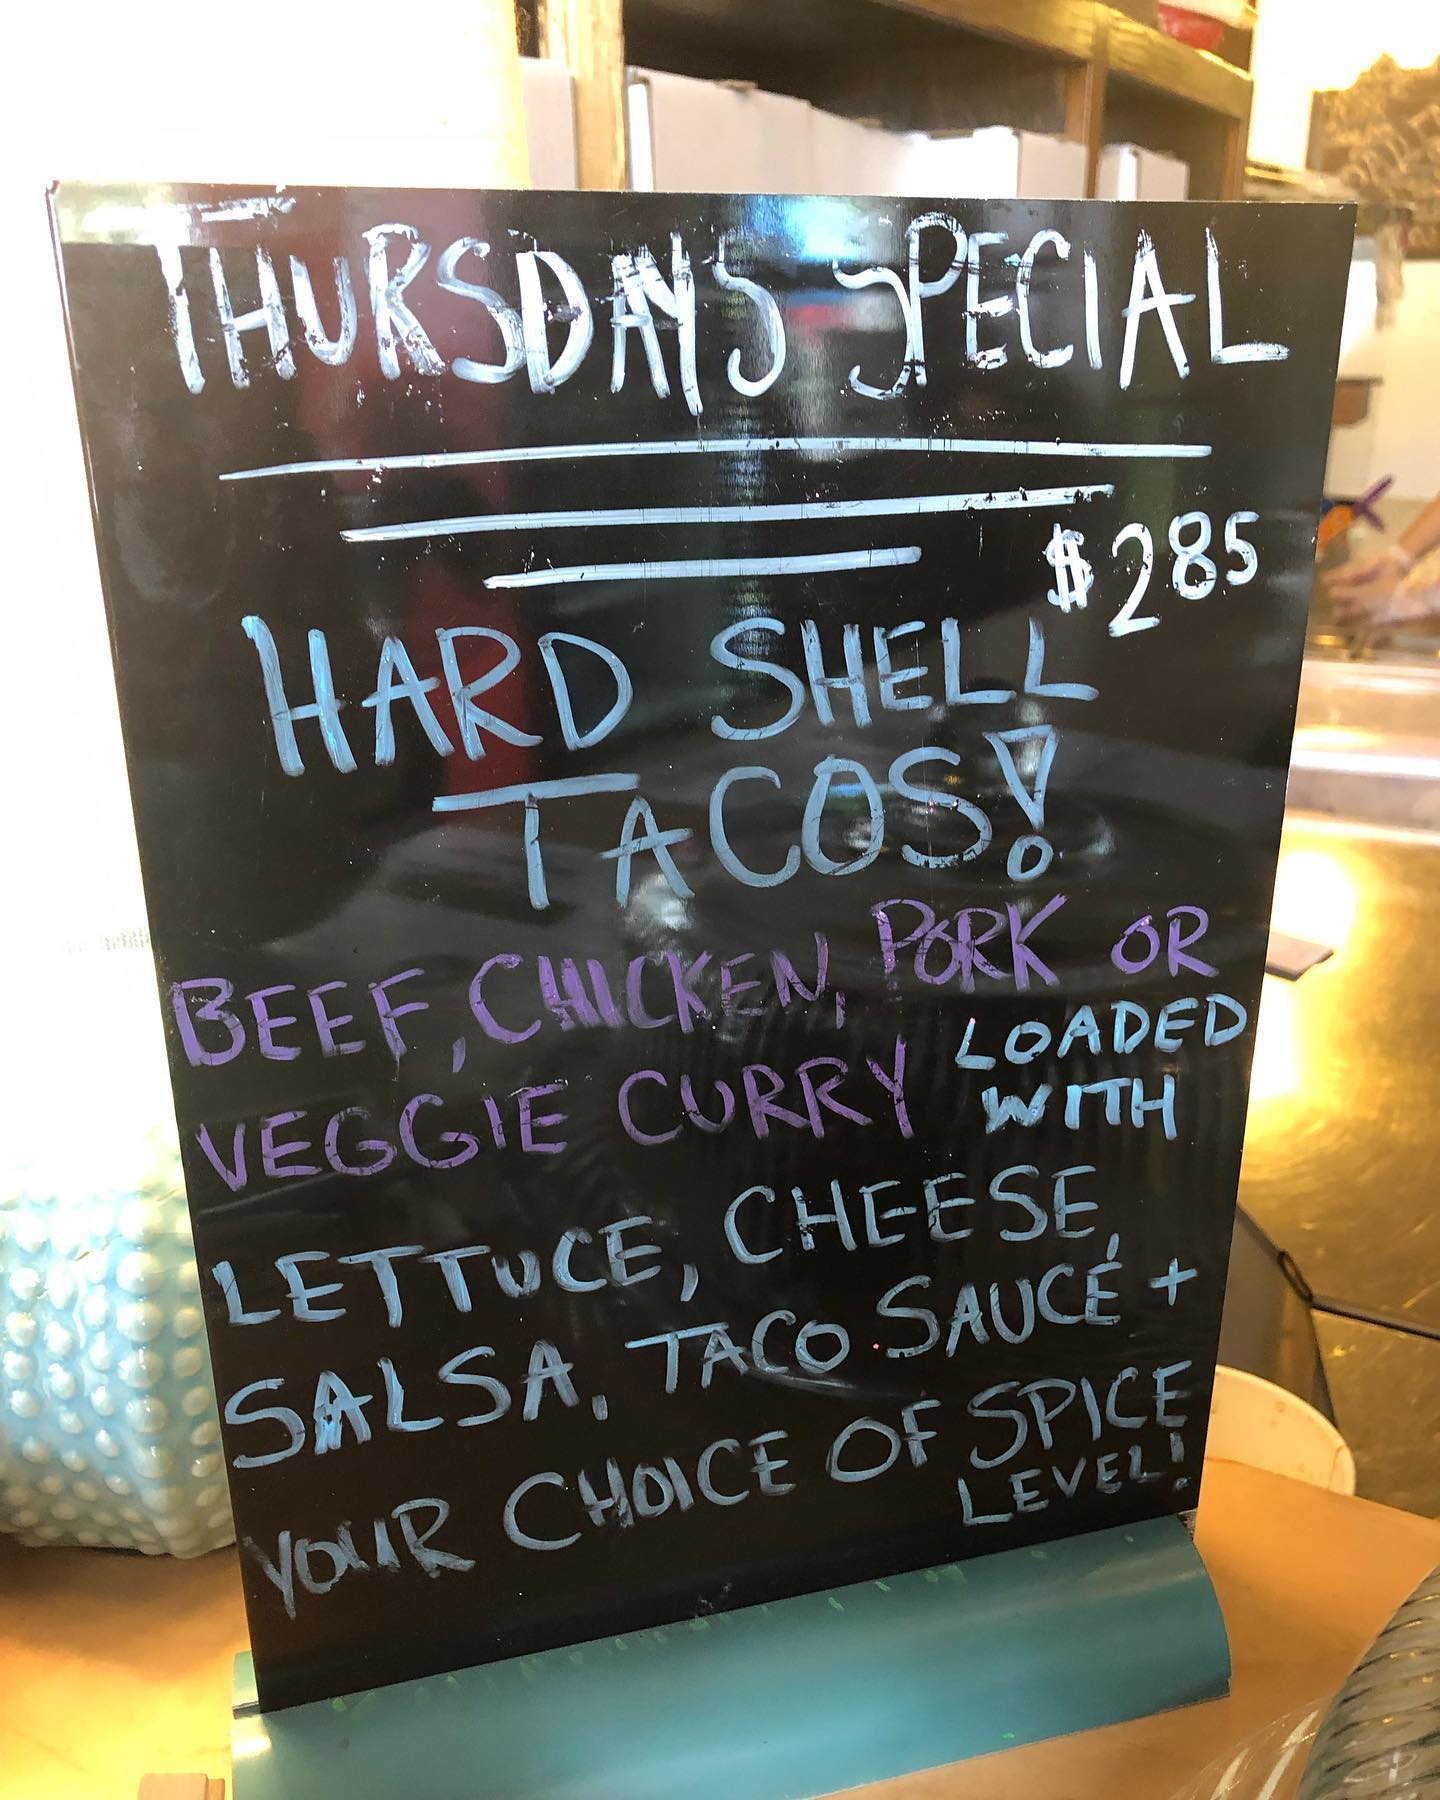 THURSDAYS SPECIAL
$2.85
HARD SHELL
TACOS!
BEEF, CHICKEN, PORK OR
VEGGIE CURRY LOADED
WITH
LETTUCE, CHEESE,
SALSA, TACO SAUCE +
YOUR CHOICE OF SPICE
LEVEL!